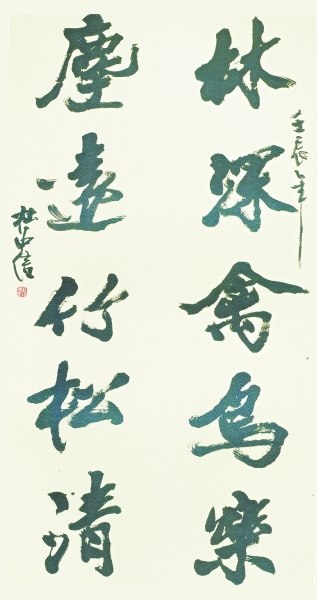 壬辰之年
林深禽鳥樂
塵遠竹松清
杜中信